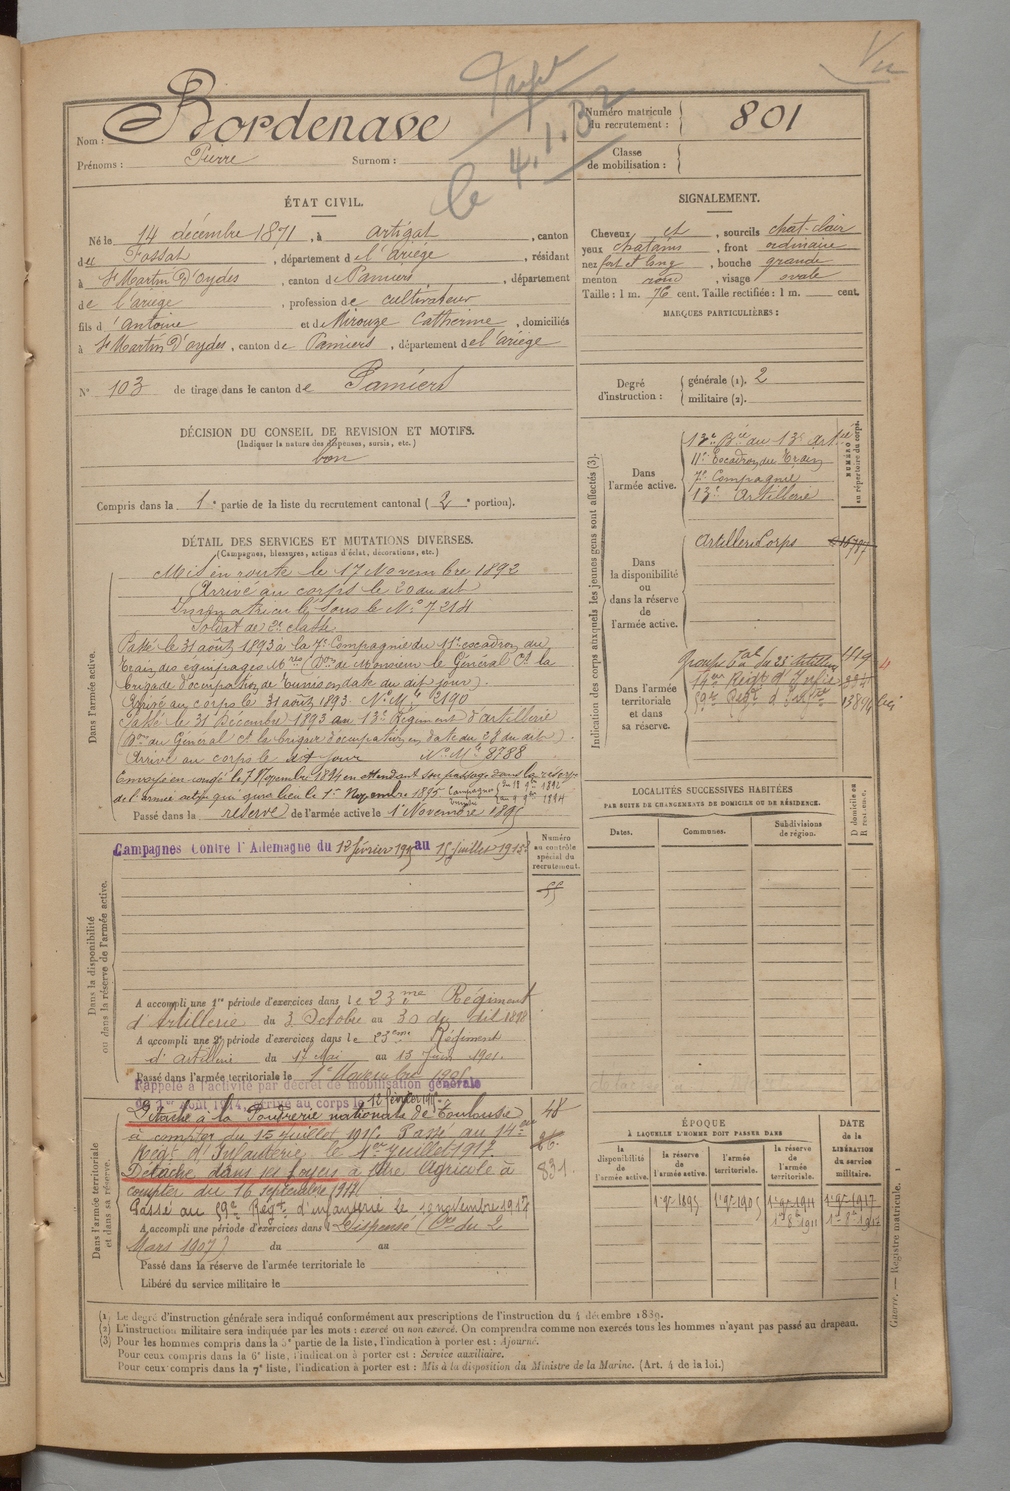 Vu
Nom : Bordenave
Prénoms : Pierre Surnom :
le 4.1.32
Numéro matricule du recrutement : 801
Classe de mobilisation :
ÉTAT CIVIL.
Né le 14 décembre 1871, à Artigat, canton
du Fossat, département de l'Ariège, résidant
à St Martin D'Oydes, canton de Pamiers, département
de l'ariège, profession de cultivateur
fils d'Antoine et de Mirouze Catherine, domiciliés
à St Martin D'oydes, canton de Pamiers, département de l'ariège
N° 103 de tirage dans le canton de Pamiers
SIGNALEMENT.
Cheveux et, sourcils chat-clair
yeux chatains, front ordinaire
nez fort et long, bouche grande
menton rond, visage ovale
Taille : 1 m. 76 cent. Taille rectifiée : 1 m. cent.
MARQUES PARTICULIÈRES :
Degré d'instruction : générale (1). 2
militaire (2).
DÉCISION DU CONSEIL DE REVISION ET MOTIFS.
(Indiquer la nature des dispenses, sursis, etc.)
bon
Compris dans la 1e partie de la liste du recrutement cantonal (2e portion).
DÉTAIL DES SERVICES ET MUTATIONS DIVERSES.
(Campagnes, blessures, actions d'éclat, décorations, etc.)
Dans l'armée active.
Mis en route le 17 Novembre 1892
Arrivé au corps le 20 du dit
Immatriculé sous le N° 7214
Soldat de 2e classe
Passé le 31 août 1893 à la 7e Compagnie du 11e escadron du
Train des equipages Mres (Don de Monsieur le Général Ct la
brigade d'occupation de Tunis en date du dit jour).
Arrivé au corps le 31 août 1893. N° Mle 2190
Passé le 31 Décembre 1893 au 13e Régiment d'artillerie
(Don du Général Ct la brigade d'occupation en date du 28 du dit).
Arrivé au corps le dit jour N° Mle 8788
Envoyé en congé le 7 Novembre 1894 en attendant son passage dans la réserve
de l'armée active qui aura lieu le 1er Novembre 1895
Passé dans la réserve de l'armée active le 1er Novembre 1895
Indication des corps auxquels les jeunes gens sont affectés (3).
NUMÉRO au répertoire du corps.
Dans l'armée active.
13e Bie du 13e Artie
11e Escadron du Train
7e Compagnie
13e Artillerie
Dans la disponibilité ou dans la réserve de l'armée active.
Artillerie Corps
Dans l'armée territoriale et dans sa réserve.
Groupe Tal du 23e Artillerie 1119
14eme Régt d'Infie
59me Regt d'Infie 13894 bis
Dans la disponibilité ou dans la réserve de l'armée active.
Campagnes Contre l'Allemagne du 12 février 1915 au 15 Juillet 1915
Numéro au contrôle spécial du recrutement.
55
A accompli une 1re période d'exercices dans le 23me Régiment
d'Artillerie du 3 Octobre au 30 du dit 1898
A accompli une 2e période d'exercices dans le 23eme Régiment
d'artillerie du 17 Mai au 13 Juin 1901.
Passé dans l'armée territoriale le 1er Novembre 1905
Rappelé à l'activité par décret de mobilisation générale
du 1er Août 1914, arrivé au corps le 12 février 1915
Dans l'armée territoriale et dans sa réserve.
Détaché à la Poudrerie nationale de Toulouse
à compter du 15 Juillet 1915. Passé au 14eme
Régt d'Infanterie le 1er Juillet 1917.
Détaché dans ses foyers à titre Agricole à
compter du 16 septembre 1917
Passé au 59e Régt d'infanterie le 12 novembre 1917
A accompli une période d'exercices dans Dispensé (Con du 2
Mars 1907) du au
48
831
Passé dans la réserve de l'armée territoriale le
Libéré du service militaire le
LOCALITÉS SUCCESSIVES HABITÉES
PAR SUITE DE CHANGEMENTS DE DOMICILE OU DE RÉSIDENCE.
Dates. Communes. Subdivisions de région. D domicile ou R résidence.
ÉPOQUE
À LAQUELLE L'HOMME DOIT PASSER DANS
la disponibilité de l'armée active. la réserve de l'armée active. l'armée territoriale. la réserve de l'armée territoriale.
DATE de la LIBÉRATION du service militaire.
1er 9bre 1895 1er 9bre 1905 1er 9bre 1911 1er 9bre 1917
1er 8bre 1911 1er 8bre 1917
(1) Le degré d'instruction générale sera indiqué conformément aux prescriptions de l'instruction du 4 décembre 1889.
(2) L'instruction militaire sera indiquée par les mots : exercé ou non exercé. On comprendra comme non exercés tous les hommes n'ayant pas passé au drapeau.
(3) Pour les hommes compris dans la 5e partie de la liste, l'indication à porter est : Ajourné.
Pour ceux compris dans la 6e liste, l'indication à porter est : Service auxiliaire.
Pour ceux compris dans la 7e liste, l'indication à porter est : Mis à la disposition du Ministre de la Marine. (Art. 4 de la loi.)
Guerre. — Registre matricule. 1